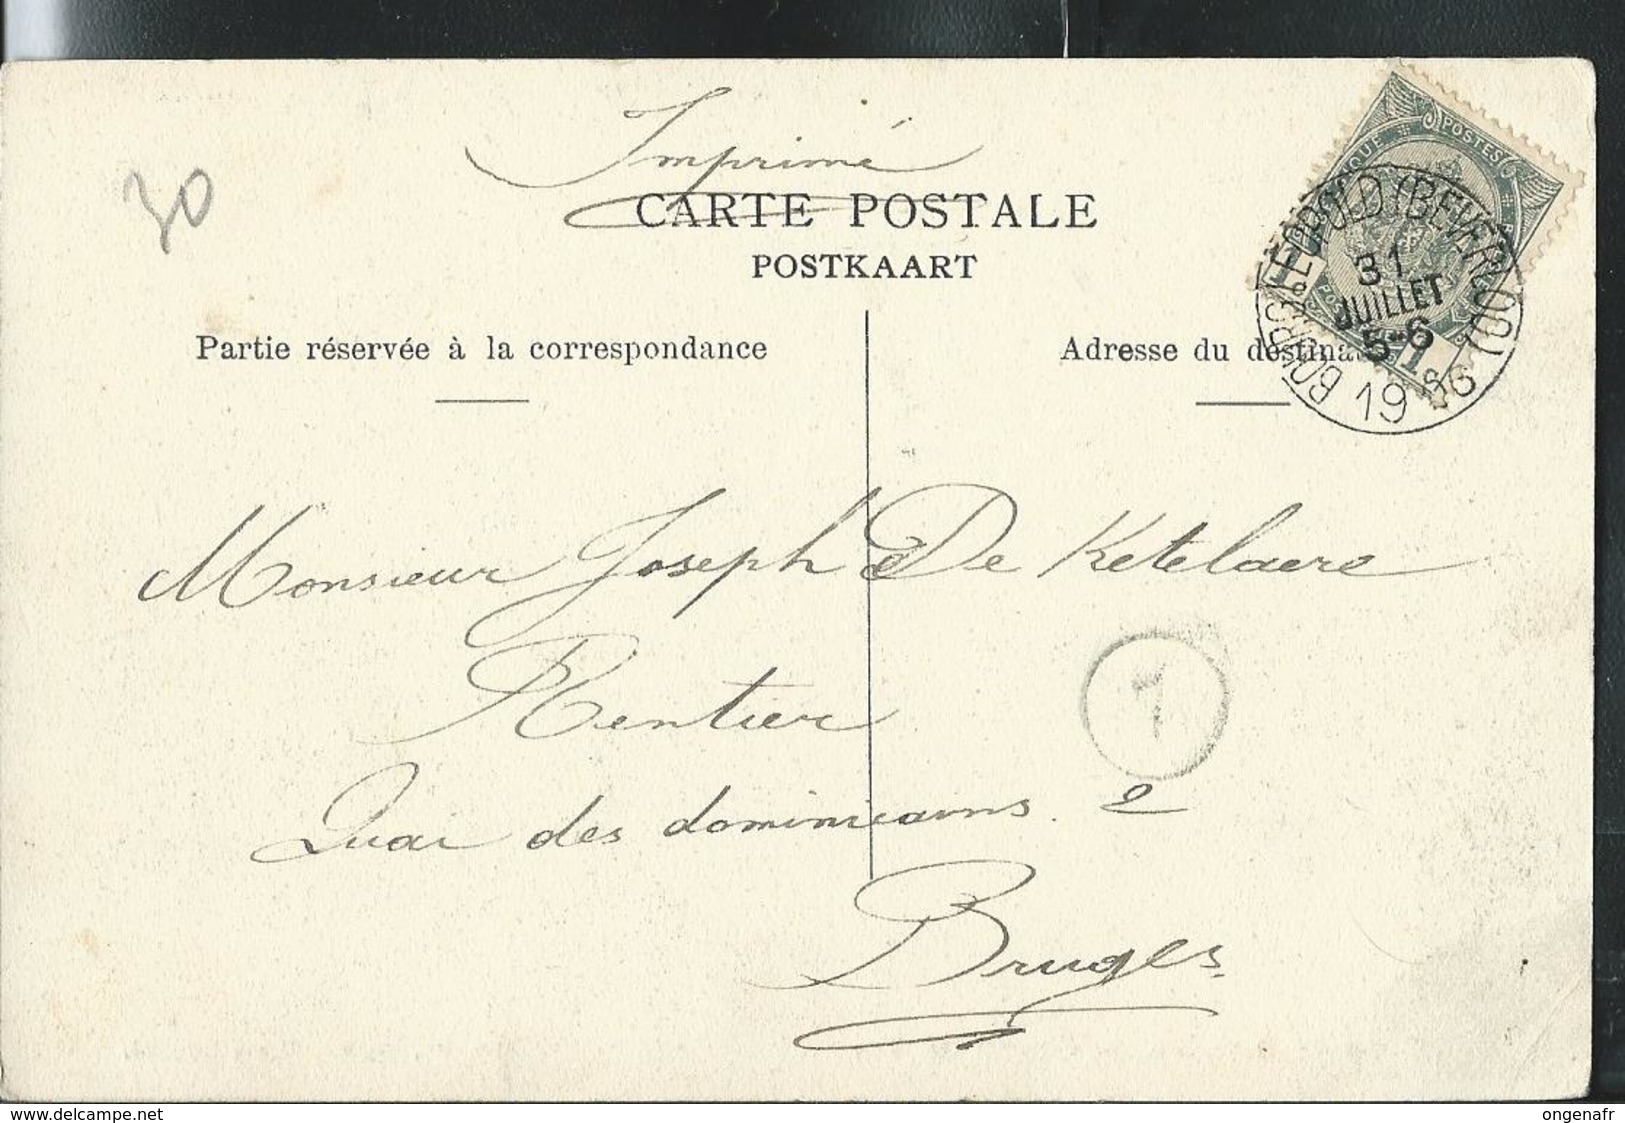 30
Imprimé
CARTE POSTALE
POSTKAART
Partie réservée à la correspondance
Adresse du destina
POSTES
BOURG-LEOPOLD (BEVERLOO)
31
JUILLET
5-6
1906
1
Monsieur Joseph De Ketelaere
Rentier
1
Quai des dominicains. 2
Bruges
delcampe.net
ongenafr